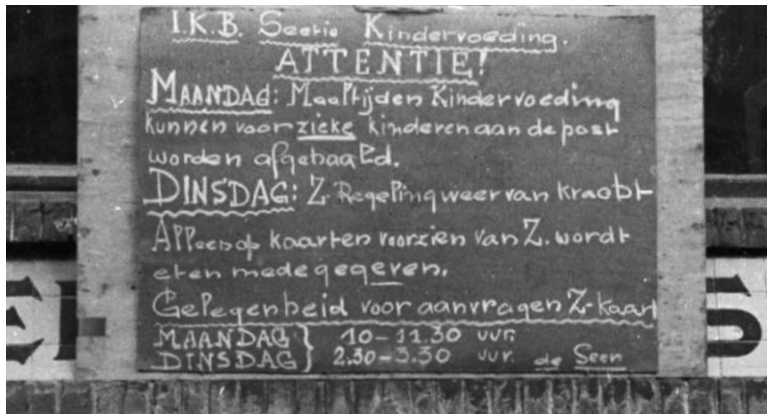 I.K.B. Sectie Kindervoeding.
ATTENTIE!
MAANDAG: Maaltijden Kindervoeding
kunnen voor zieke kinderen aan de post
worden afgehaald.
DINSDAG: Z-Regeling weer van kracht
Alleen op kaarten voorzien van Z. wordt
eten medegegeven.
Gelegenheid voor aanvragen Z-kaart
MAANDAG } 10-11.30 uur.
DINSDAG } 2.30-3.30 uur. de